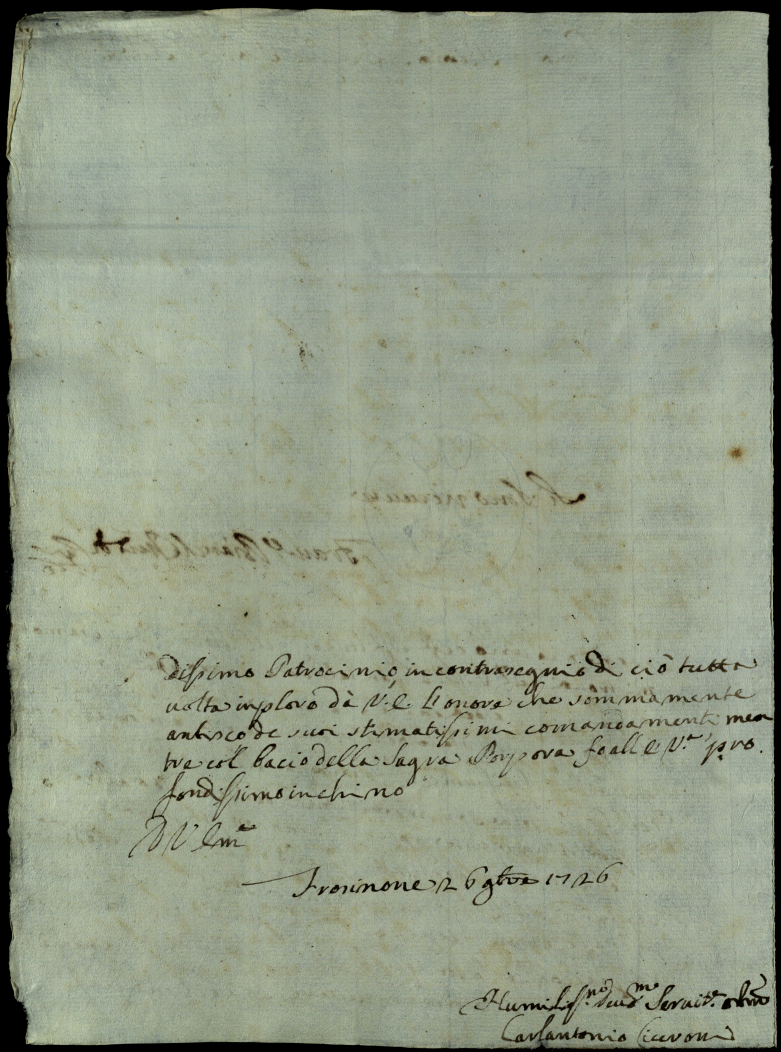 dissimo Patrocinio, in contrasegnio di ciò tutta
volta imploro dà V. E. l'onore che sommamente
ambisco de suoi stimatissimi comandamenti men
tre coll bacio della Sagra Porpora fo all'E. Vra. pro.
fondissimo inchino
D V Emã
Frosinone 26 9bre 1726
Humiliss.mo Deu.mo Seruit.e
Carlantonio Ciceroni